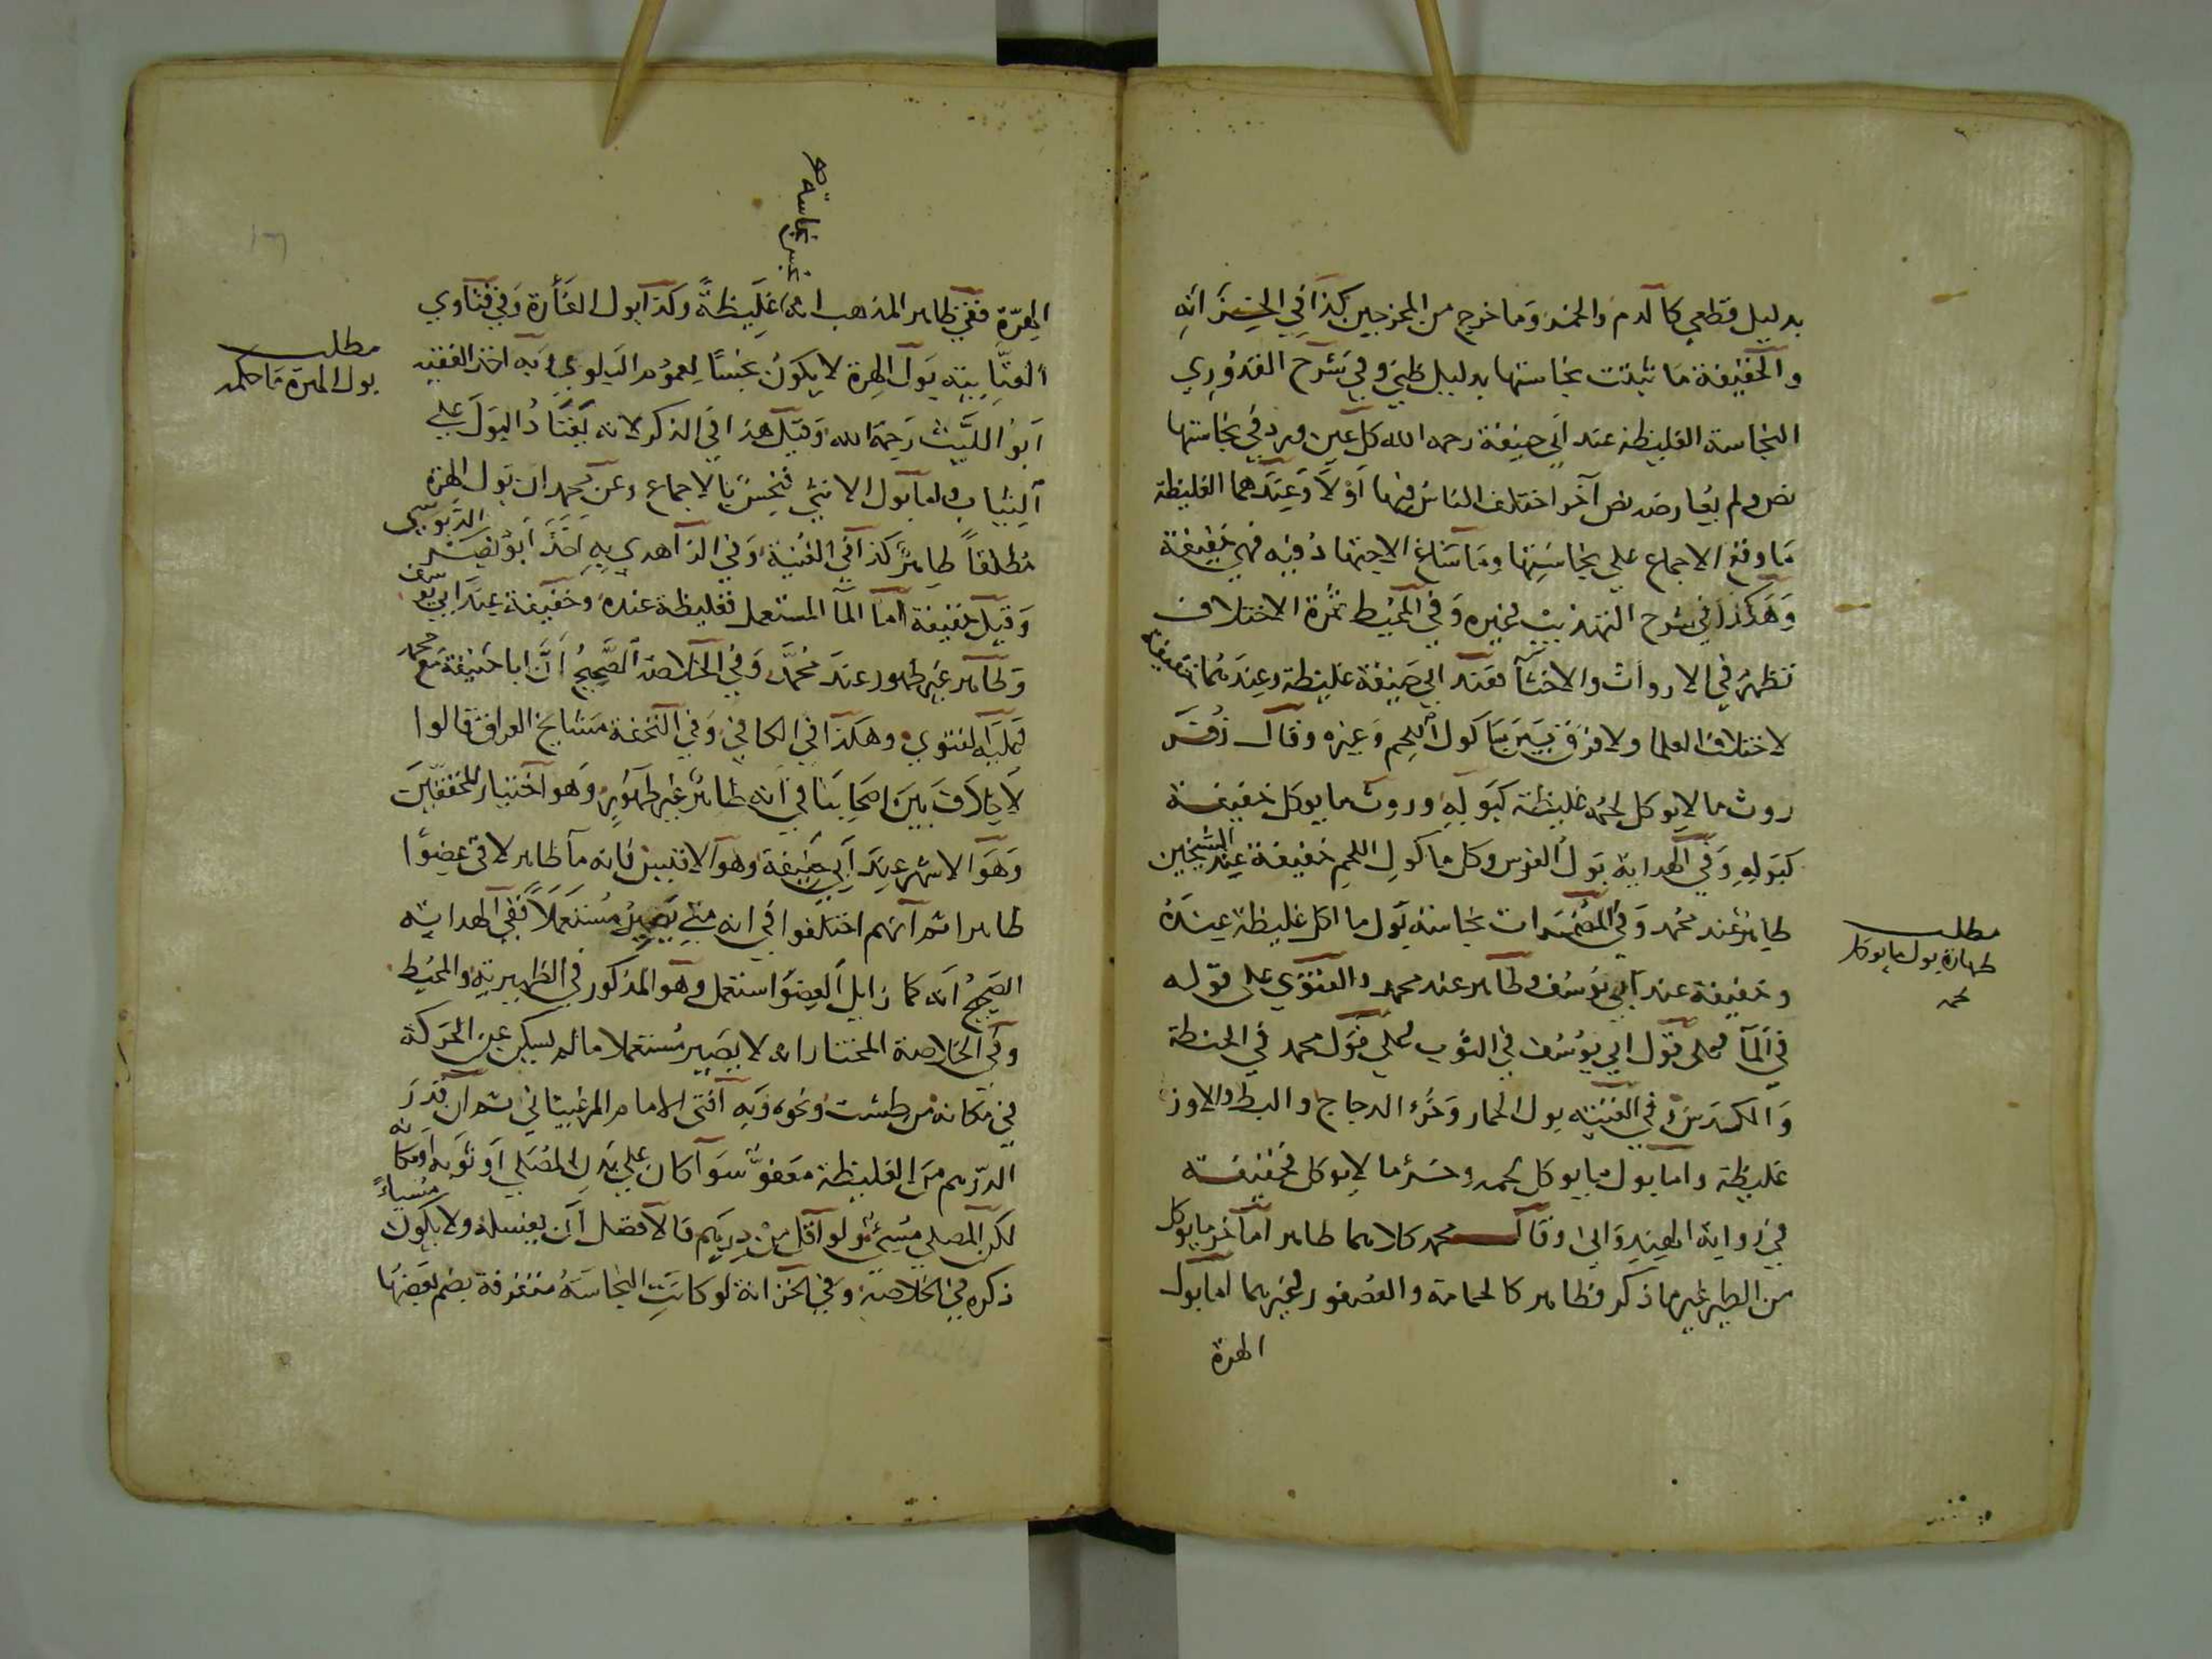 بدليل قطعي كالدم والخمر وما خرج من المخرجين كذا في الخزانه
والخفيفة ما ثبتت نجاستها بدليل ظني وفي شرح القدوري
النجاسة الغليظة عند ابي حنيفة رحمه الله كل عين ورد في نجاستها
نص ولم يعارضه نص آخر اختلف الناس فيها اولا وعندهما الغليظة
ما وقع الاجماع علي نجاستها وما ساغ الاجتهاد فيه فهي خفيفة
وهكذا في شرح التهذيب وغيره وفي المحيط ثمرة الاختلاف
تظهر في الاروات والاخثآ فعند ابي حنيفة غليظة وعندهما خفيفة
لاختلاف العلما ولا فرق بين ماكول اللحم وغيره وقال زفر
روث ما لا يوكل لحمه غليظة كبوله وروث ما يوكل خفيفة
كبوله وفي الهداية بول الفرس وكل ماكول اللحم خفيفة عند الشيخين
طاهر عند محمد وفي المضمرات نجاسة بول ما اكل غليظة عنده
وخفيفة عند ابي يوسف وطاهر عند محمد والفتوي على قوله
في المآ وعلى قول ابي يوسف في الثوب وعلي قول محمد في الحنطة
والكدس وفي القنيه بول الحمار وخرء الدجاج والبط والاوز
غليظة واما بول ما يوكل لحمه وخرء ما لا يوكل فخفيفة
في رواية الهندواني وقال محمد كلاهما طاهر اما خرء ما يوكل
من الطير غير ما ذكر فطاهر كالحمامة والعصفور وغيرهما اما بول
الهرة
مطلب
طهارة بول ما يوكل
لحمه
الهرة ففي ظاهر المذهب انها غليظة وكذا بول الفأرة وفي فتاوي
العتابيه بول الهرة لا يكون نجسا لعموم البلوي وبه اخذ الفقيه
ابو الليث رحمه الله وقيل هذا في الذكر لانه يعتاد البول علي
الثياب واما بول الانثي فنجس بالاجماع وعن محمد ان بول الهرة
مطلقا طاهر كذا في القنية وفي الزاهدي به اخذ ابو نصر الدبوسي
وقيل خفيفة اما المآ المستعمل فغليظة عنده وخفيفة عند ابي يوسف
وطاهر غير طهور عند محمد وفي الخلاصة الصحيح ان ابا حنيفة مع محمد
وعليه الفتوي وهكذا في الكافي وفي التحفة مشايخ العراق قالوا
لا خلاف بين اصحابنا في انه طاهر غير طهور وهو اختيار المحققين
وهو الاشهر عند ابي حنيفة وهو الاقيس فانه مآ طاهر لاقي عضوا
طاهرا ثم انهم اختلفوا في انه متي يصير مستعملا ففي الهدايه
الصحيح انه كما زايل العضو استعمل وهو المذكور في الظهيرية والمحيط
وفي الخلاصة المختار انه لا يصير مستعملا ما لم يسكن عن الحركة
في مكانه من طشت ونحوه وبه افتى الامام المرغيناني ثم ان قدر
الدرهم من الغليظة معفو سوآ كان علي بدن المصلي او ثوبه او مكانه
لكن المصلي مسيء ولو اقل من درهم فالافضل ان يغسله ولا يكون مسيئا
ذكره في الخلاصة وفي الخزانة لو كانت النجاسة متفرقة يضم بعضها
مطلب
بول الهرة ما حكمه